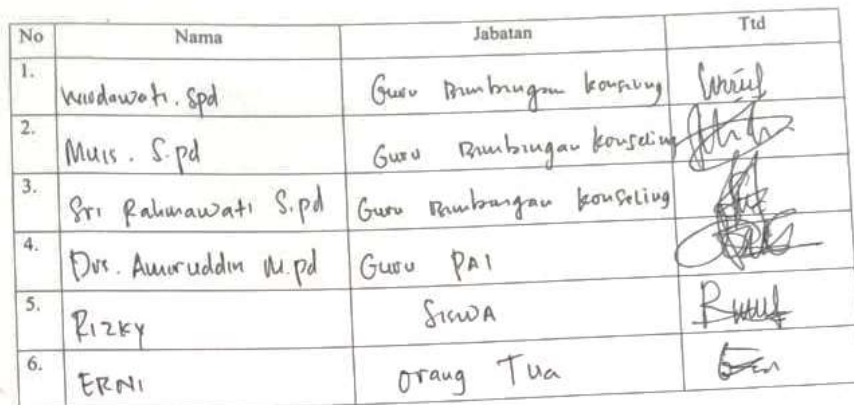 No Nama Jabatan Ttd
1. Wirdawati. Spd Guru Bimbingan konseling
2. Muis. S.pd Guru Bimbingan konseling
3. Sri Rahmawati S.pd Guru Bimbingan konseling
4. Drs. Amiruddin M.pd Guru PAI
5. Rizky Siswa
6. ERNI Orang Tua